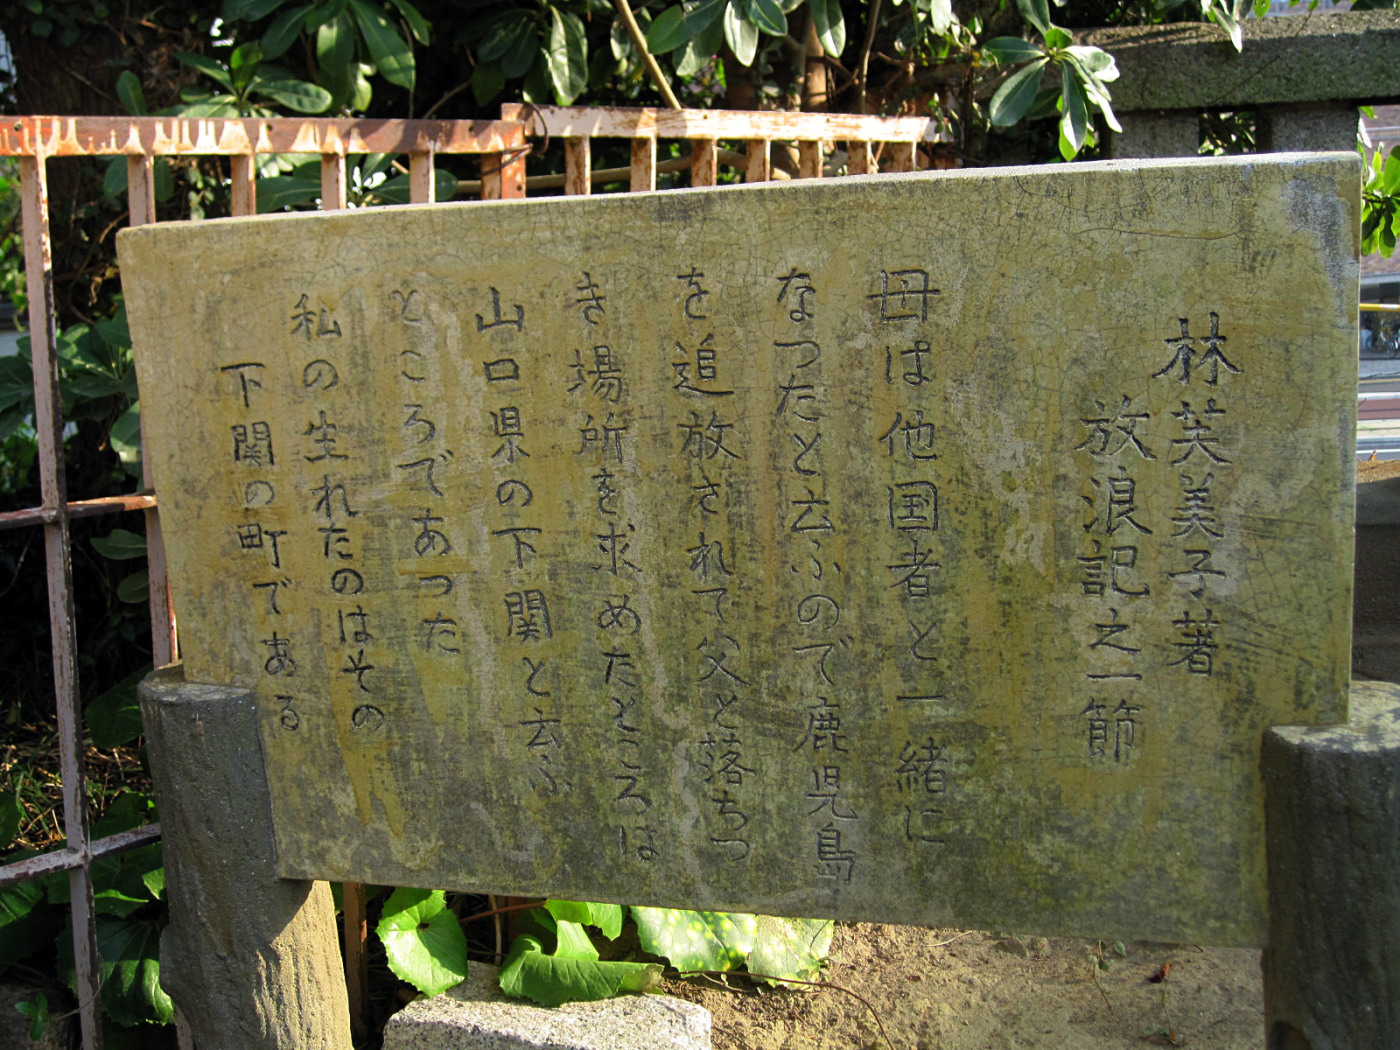 林芙美子著
放浪記之一節
母は他国者と一緒に
なつたと云ふので鹿児島
を追放されて父と落ちつ
き場所を求めたところは
山口県の下関と云ふ
ところであつた
私の生れたのはその
下関の町である